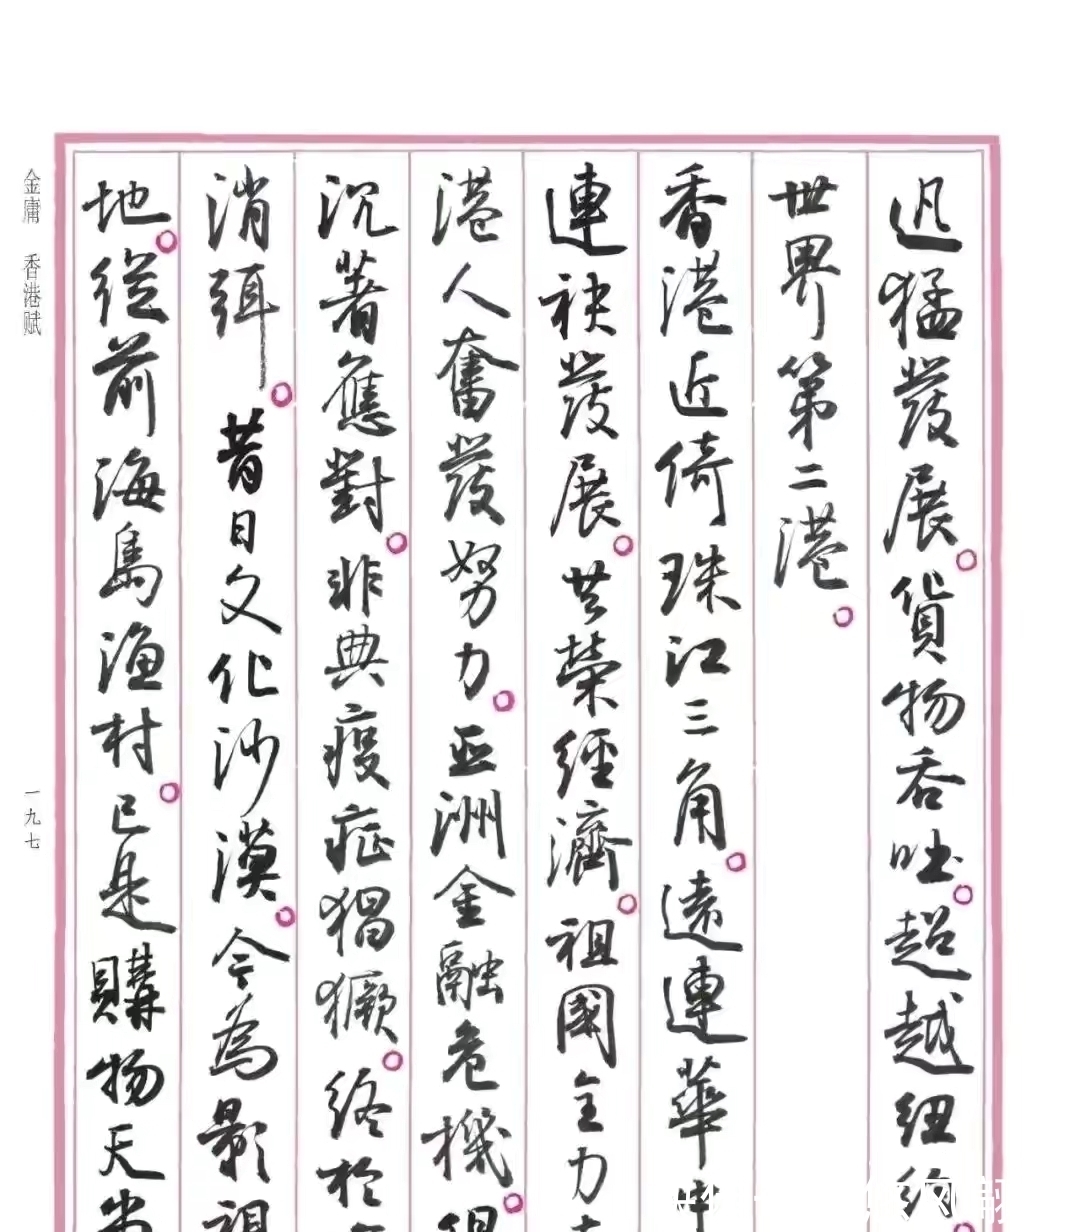 迅猛發展。貨物吞吐。超越紐約
世界第二港。
香港近倚珠江三角。遠連華中
連袂發展。共榮經濟。祖國全力
港人奮發努力。亞洲金融危機。
沉著應對。非典疫症猖獗。終於
消弭。昔日文化沙漠。今為影視
地。從前海島漁村。已是購物天堂
金庸 香港赋
一九七